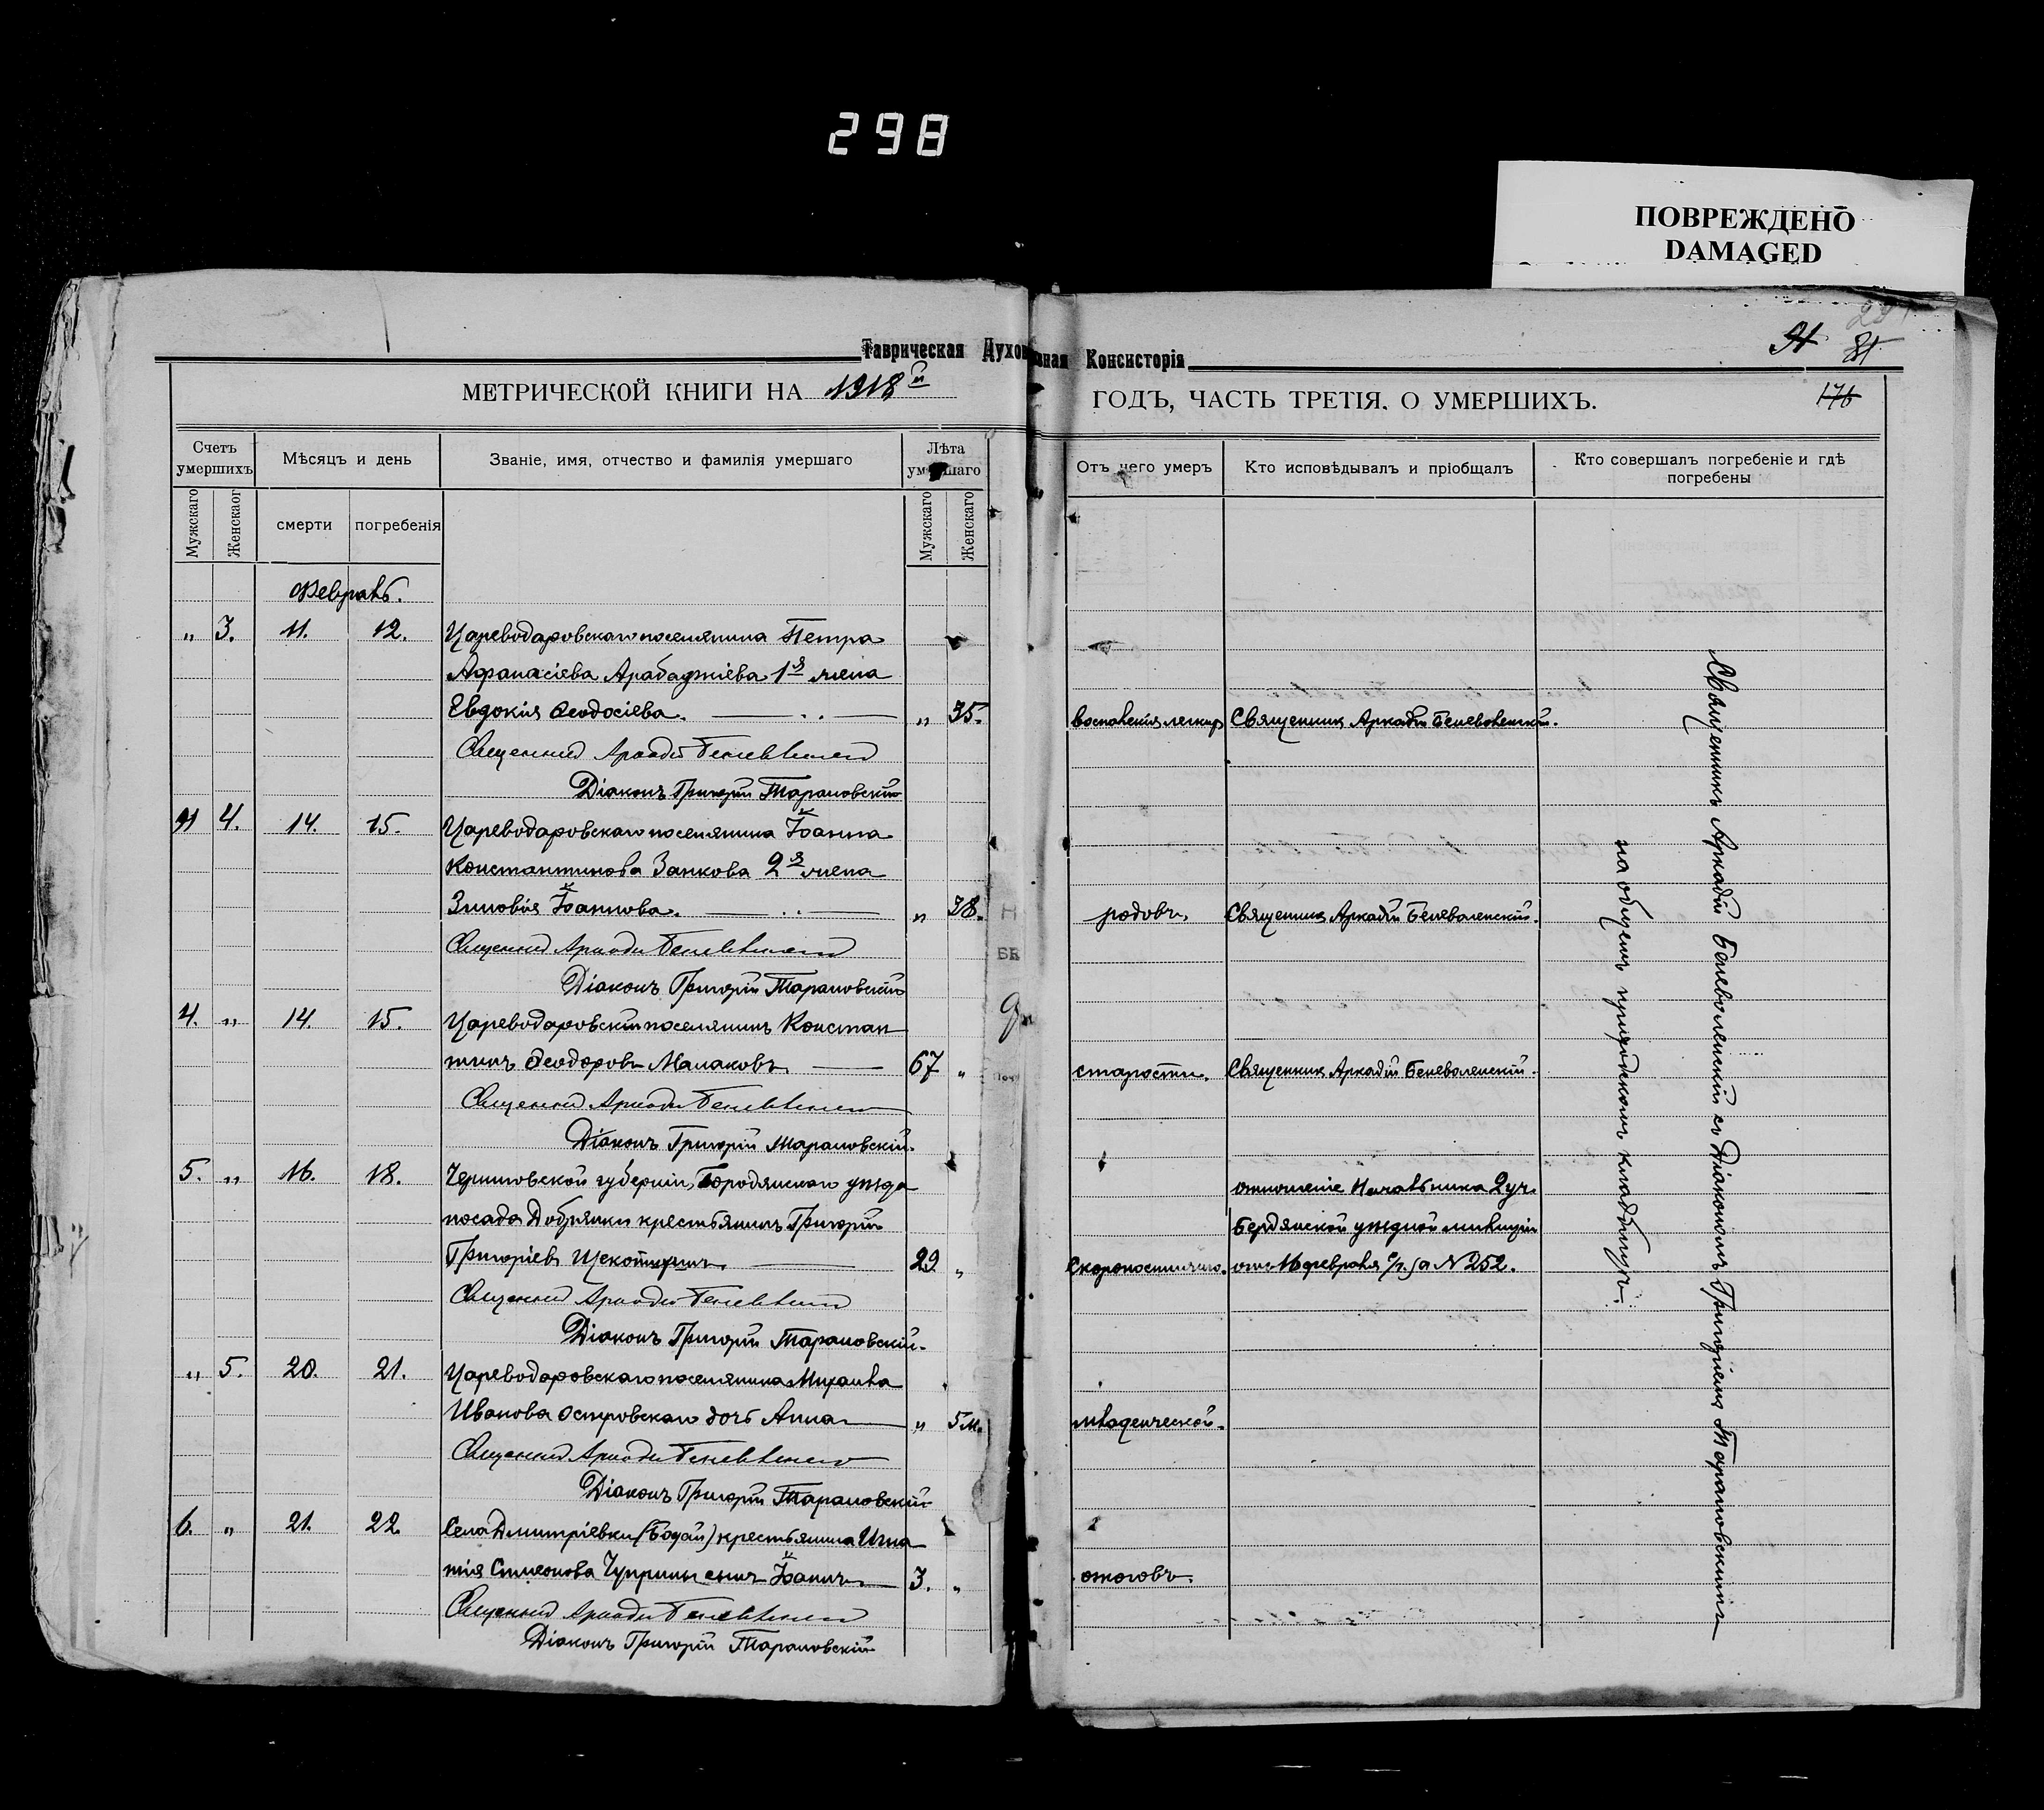 298
ПОВРЕЖДЕНО
DAMAGED
Таврическая Духовная Консисторія
МЕТРИЧЕСКОЙ КНИГИ НА 1918й ГОДЪ, ЧАСТЬ ТРЕТІЯ. О УМЕРШИХЪ.
176
Счетъ умершихъ
Мѣсяцъ и день
Званіе, имя, отчество и фамилія умершаго
Лѣта умершаго
Отъ чего умеръ
Кто исповѣдывалъ и пріобщалъ
Кто совершалъ погребеніе и гдѣ погребены
Мужскаго
Женскаго
смерти
погребенія
Мужскаго
Женскаго
Февраль.
„ 3. 11. 12. Цареводаровскаго поселянина Петра
Афанасіева Арабаджіева 1я жена
Евдокія Ѳеодосіева. „ 35. воспаленія легких Священник Аркадій Беневоленскій.
Священник Аркадій Беневоленскій
Діаконъ Григорій Тарановскій
4. 14. 15. Цареводаровскаго поселянина Іоанна
Константинова Занкова 2я жена
Зиновія Іоаннова. „ 38. родовъ. Священник Аркадій Беневоленскій.
Священник Аркадій Беневоленскій
Діаконъ Григорій Тарановскій
4. „ 14. 15. Цареводаровскій поселянинъ Констан
тинъ Ѳеодоровъ Малаковъ 67 „ старости. Священник Аркадій Беневоленскій.
Священник Аркадій Беневоленскій
Діаконъ Григорій Тарановскій.
5. „ 16. 18. Черниговской губерніи, Городянскаго уѣзда
отношеніе Начальника 2 уч.
посада Добрянки крестьянинъ Григорій
Бердянской уѣздной милиціи
Григоріевъ Щекотуринъ 29 „ Скоропостижно. отъ 16 февраля с/г. за N 252.
Священник Аркадій Беневоленскій
Діаконъ Григорій Тарановскій.
„ 5. 20. 21. Цареводаровскаго поселянина Михаила
Иванова Островскаго дочь Анна „ 5 м. младенческой.
Священник Аркадій Беневоленскій
Діаконъ Григорій Тарановскій
6. „ 21. 22. Села Дмитріевки (Богай) крестьянина Игна
тія Симеонова Чуприны сынъ Іоаннъ 3. „ ожоговъ.
Священник Аркадій Беневоленскій
Діаконъ Григорій Тарановскій
Священникъ Аркадій Беневоленскій съ Діакономъ Григоріемъ Тарановскимъ
на общемъ приходскомъ кладбищѣ.